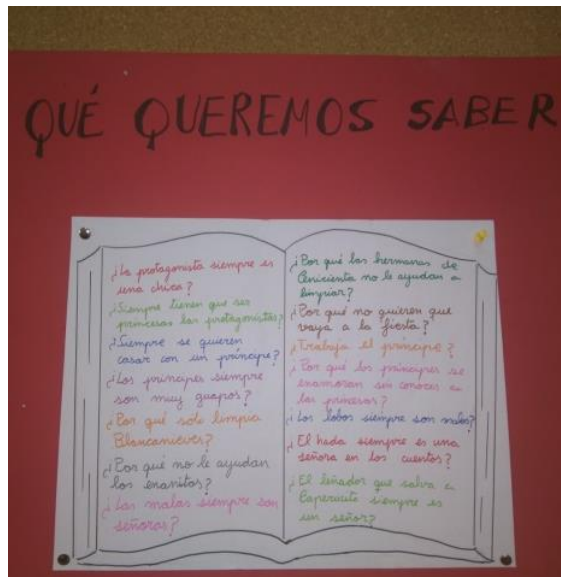 QUÉ QUEREMOS SABER
¿La protagonista siempre es
una chica?
¿Siempre tienen que ser
princesas las protagonistas?
¿Siempre se quieren
casar con un príncipe?
¿Los príncipes siempre
son muy guapos?
¿Por qué sólo limpia
Blancanieves?
¿Por qué no le ayudan
los enanitos?
¿Las malas siempre son
señoras?
¿Por qué las hermanas de
Cenicienta no le ayudan a
limpiar?
¿Por qué no quieren que
vaya a la fiesta?
¿Trabaja el príncipe?
¿Por qué los príncipes se
enamoran sin conocer a
las princesas?
¿Los lobos siempre son malos?
¿El hada siempre es una
señora en los cuentos?
¿El leñador que salva a
Caperucita siempre es
un señor?